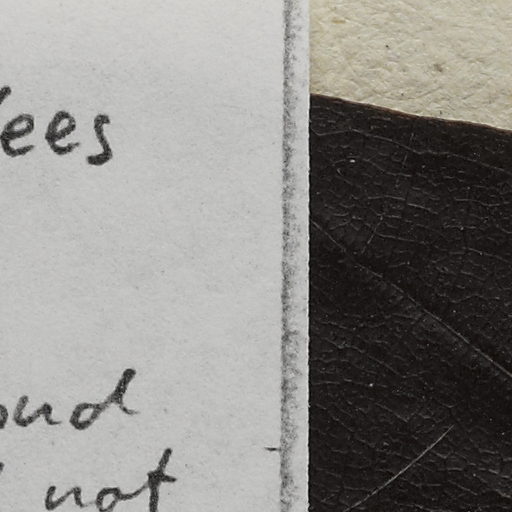 ees
ound
not